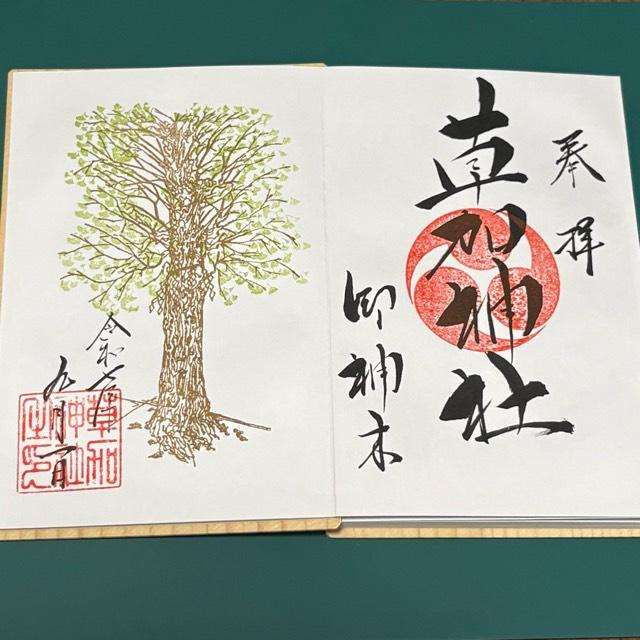 奉拝
草加神社
御神木
令和七年
九月一日
草加
神社
之印